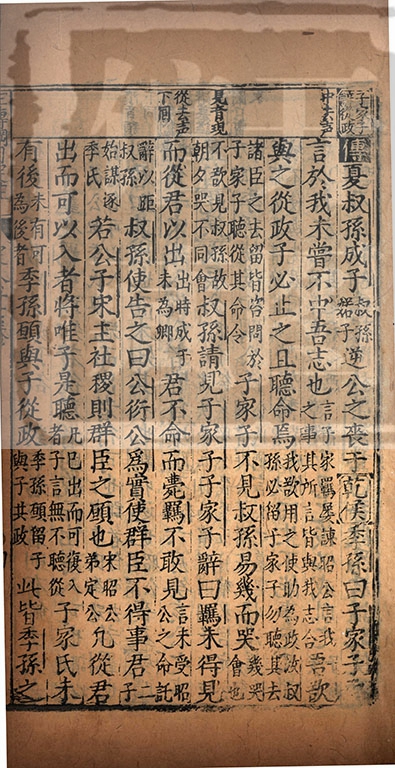 中去声
見音現
從去声
下同
傳夏叔孫成子叔孫婼子逆公之喪于乾侯季孫曰子家子
言於我未嘗不中吾志也言子家羈屢諫昭公言我之事其所言皆與我志合吾欲
與之從政子必止之且聽命焉我欲用之使助為政叔孫必留子家子勿聽其去
諸臣之去留皆咨問於子家子聽從其命令子家子不見叔孫易幾而哭幾哭會也
不欲見叔孫故朝夕哭不同會叔孫請見子家子子家子辭曰羈未得見
而從君以出出時成子未為卿君不命而薨羈不敢見言未受昭公之命託
辭以距叔孫叔孫使告之曰公衍公爲實使群臣不得事君二子
始謀逐季氏若公子宋主社稷則群臣之願也宋昭公弟定公凡從君
出而可以入者將唯子是聽凡已出而可復入者子言無不聽從子家氏未
有後未有可為後者季孫願與子從政季孫願留子與子共政此皆季孫之